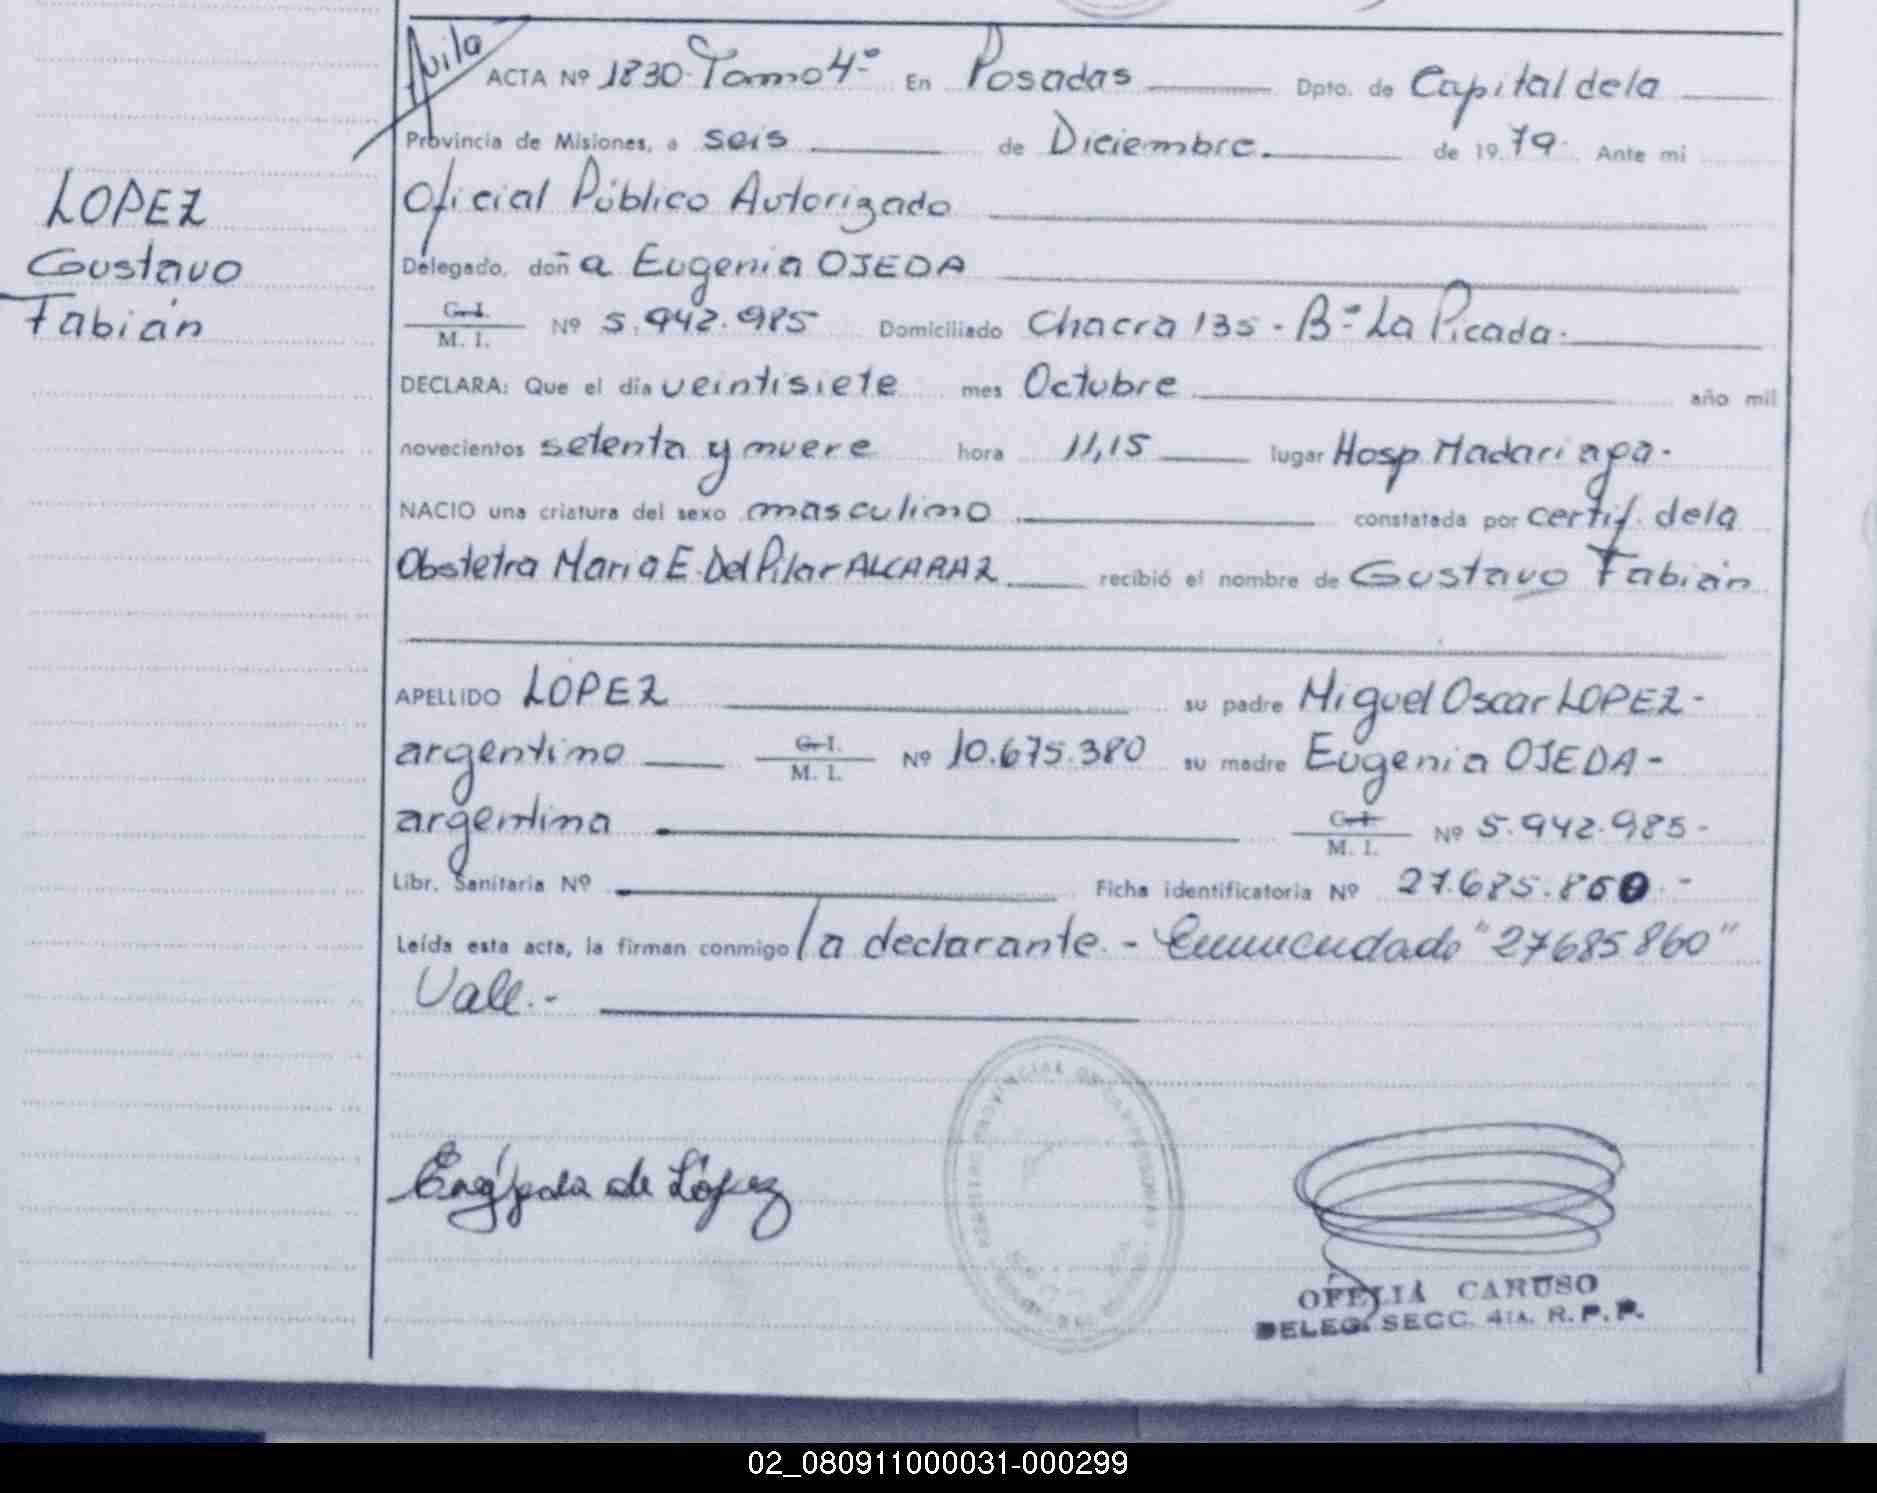 Avila
ACTA Nº 1830 - Tomo 4º En Posadas Dpto. de Capital de la
Provincia de Misiones, a seis de Diciembre. de 1979. Ante mi
Oficial Público Autorizado
Delegado, doña Eugenia OJEDA
C. I.
M. I. Nº 5.942.985 Domiciliado Chacra 135 - Bº La Picada.
DECLARA: Que el día veintisiete mes Octubre año mil
novecientos setenta y nueve hora 11,15 lugar Hosp. Madariaga.
NACIO una criatura del sexo masculino constatada por certif. de la
Obstetra Maria E. Del Pilar ALCARAZ recibió el nombre de Gustavo Fabián
APELLIDO LOPEZ su padre Miguel Oscar LOPEZ-
argentino C. I.
M. I. Nº 10.675.380 su madre Eugenia OJEDA-
argentina C. I.
M. I. Nº 5.942.985-
Libr. Sanitaria Nº Ficha identificatoria Nº 27.685.860.-
Leída esta acta, la firman conmigo la declarante. - Enmendado "27685860"
Vale.-
LOPEZ
Gustavo
Fabián
de López
OFELIA CARUSO
DELEG. SECC. 4TA. R.P.P.
02_080911000031-000299